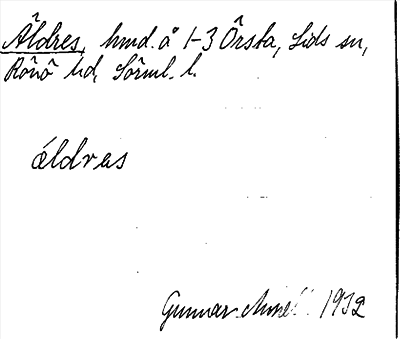 Äldres, hmd. å 1-3 Örsta, Lids sn,
Rönö hd, Sörml. l.
äldres
Gunnar 1932